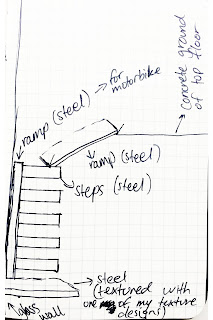 ramp (steel) → for
motorbike
concrete ground
of top floor
ramp (steel)
steps (steel)
steel
(textured with
one of my texture
designs)
glass
wall